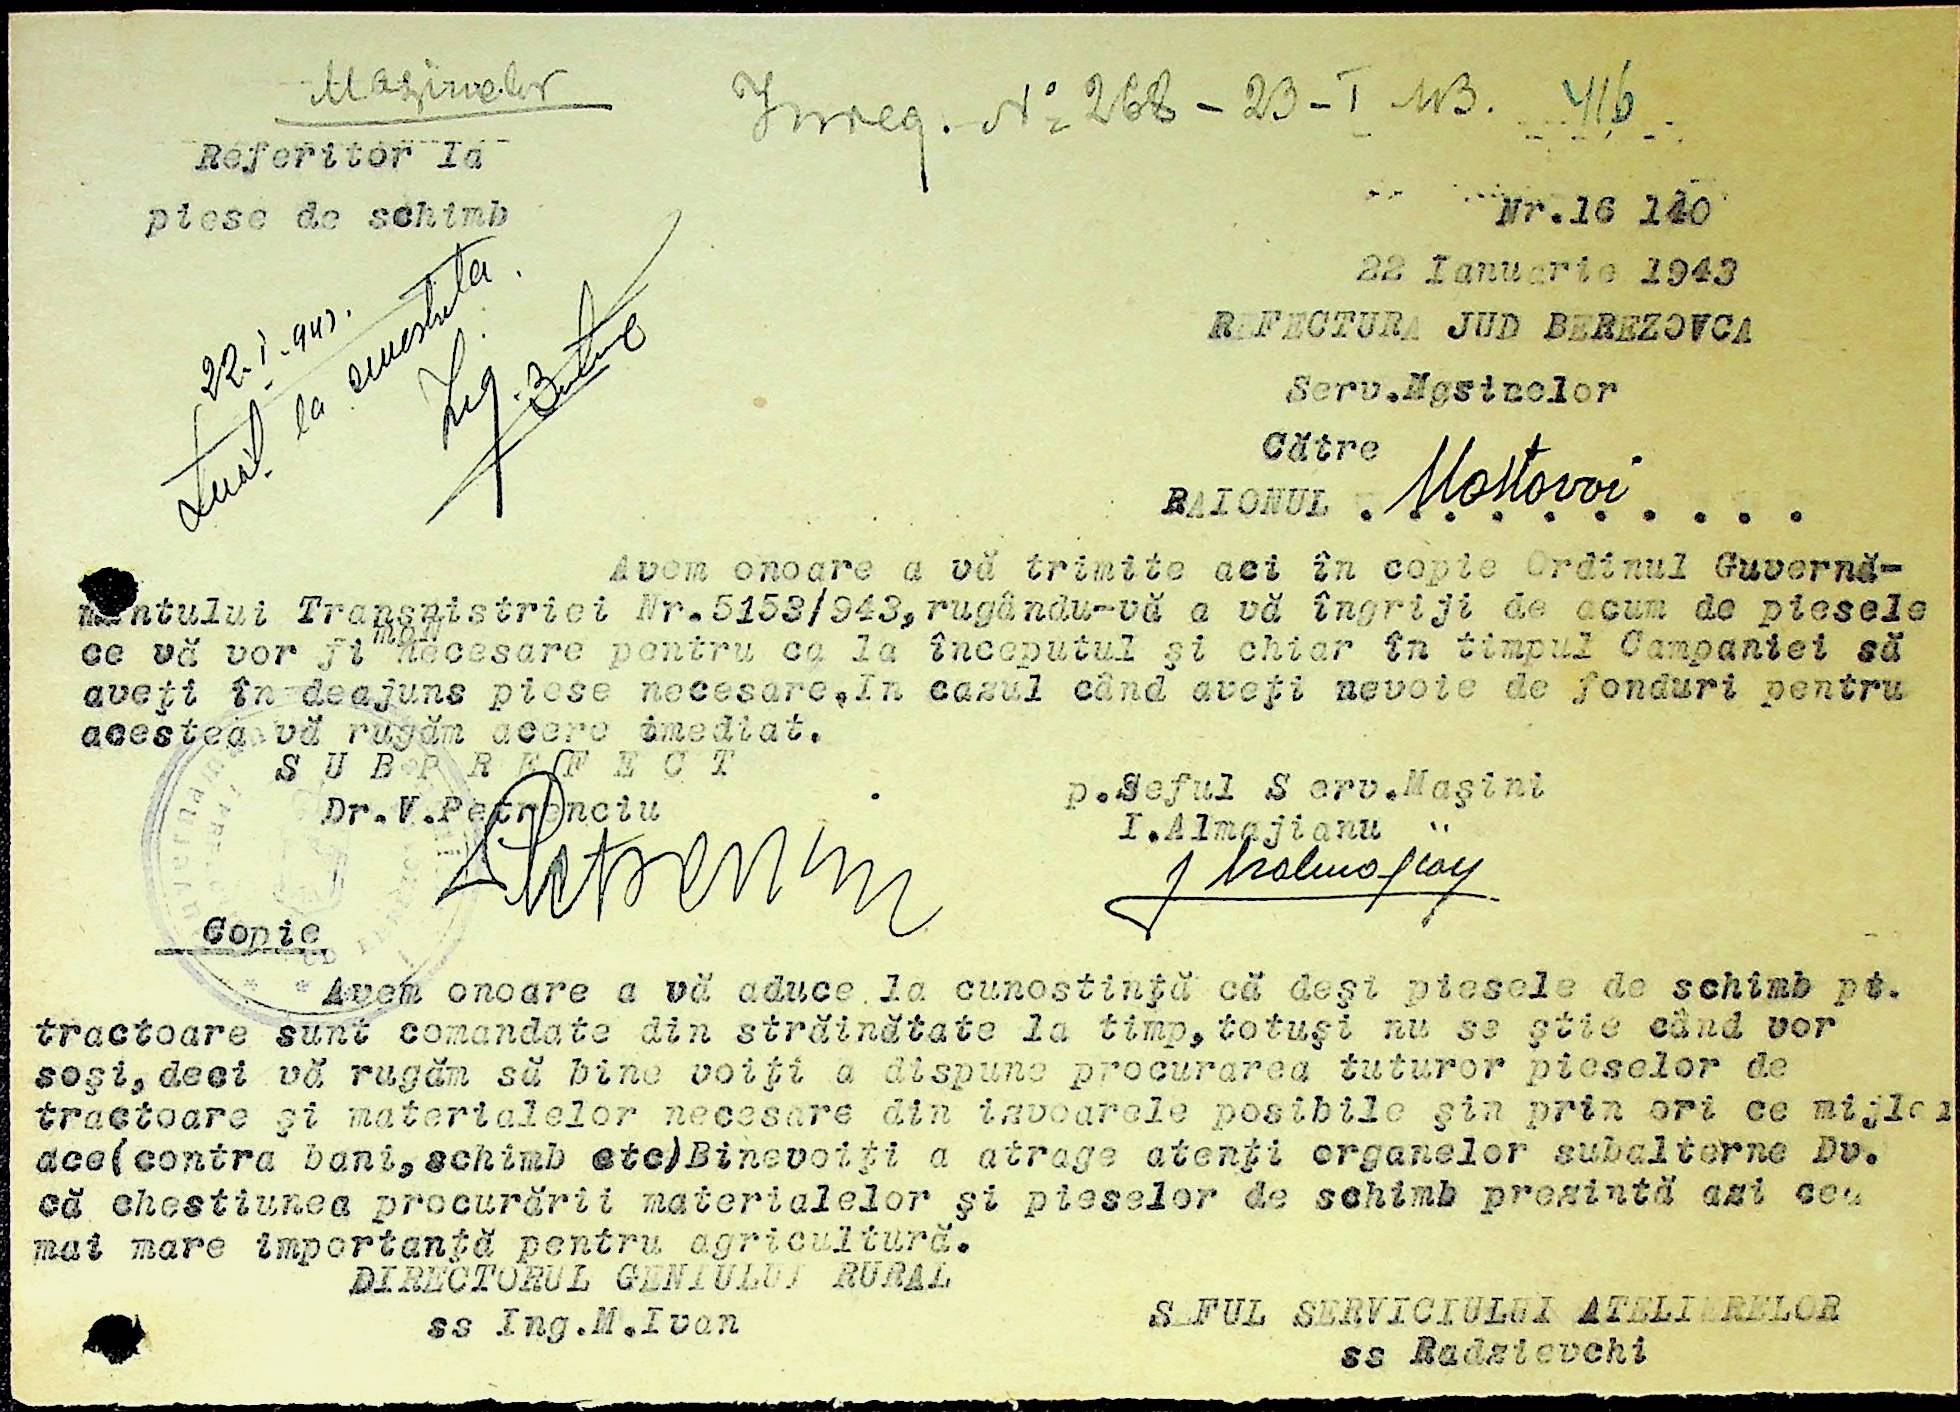 Mașinelor
Inreg. Nº 268 - 23 - I 1943. 416
Referitor la
piese de schimb
Nr.16 140
22 Ianuarie 1943
REFECTURA JUD BEREZOVCA
Serv.Mgsinelor
Către
RAIONUL . Mostovoi . . . . . . . . .
22.I.943.
la
Ing.
Avem onoare a vă trimite aci în copie Ordinul Guvernă-
mentului Transnistriei Nr.5153/943,rugându-vă a vă îngriji de acum de piesele
ce vă vor fi necesare pentru ca la începutul și chiar în timpul Campaniei să
aveți în deajuns piese necesare.In cazul când aveți nevoie de fonduri pentru
acestea vă rugăm acere imediat.
S U B P R E F E C T
Dr.V.Petrenciu
p.Seful S erv.Mașini
I.Almajianu
Copie
Avem onoare a vă aduce la cunostință că deși piesele de schimb pt.
tractoare sunt comandate din străinătate la timp,totuși nu se știe când vor
soși,deci vă rugăm să bine voiți a dispune procurarea tuturor pieselor de
tractoare și materialelor necesare din izvoarele posibile șin prin ori ce mijlo
ace(contra bani,schimb etc)Binevoiți a atrage atenți organelor subalterne Dv.
că chestiunea procurării materialelor și pieselor de schimb prezintă azi cea
mai mare importanță pentru agricultură.
DIRECTORUL GENIULUI RURAL
ss Ing.M.Ivan
S FUL SERVICIULUI ATELIERELOR
ss Radzievchi